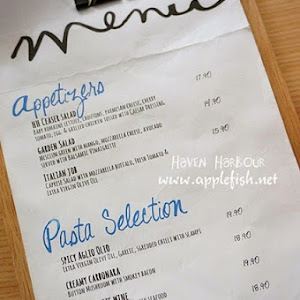 menu
Appetizers
HH Ceaser Salad
17.90
Baby Romaine Lettuce, Croutons, Parmesan Cheese, Cherry
Tomato, Egg, & Grilled Chicken Tossed with Caesar Dressing
Garden Salad
14.90
Mesclun Green with Mango, Mozzarella Cheese, Avocado
Served with Balsamic Vinaigrette
Italian Job
15.90
Caprese Salad with Mozzarella Buffalo, Fresh Tomato &
Extra Virgin Olive Oil
Haven Harbour
www.applefish.net
Pasta Selection
Spicy Aglio Olio
19.90
Extra Virgin Olive Oil, Garlic, Shredded Chilli with Scamps
Creamy Carbonara
18.90
Button Mushroom with Smokey Bacon
Wine
19.90